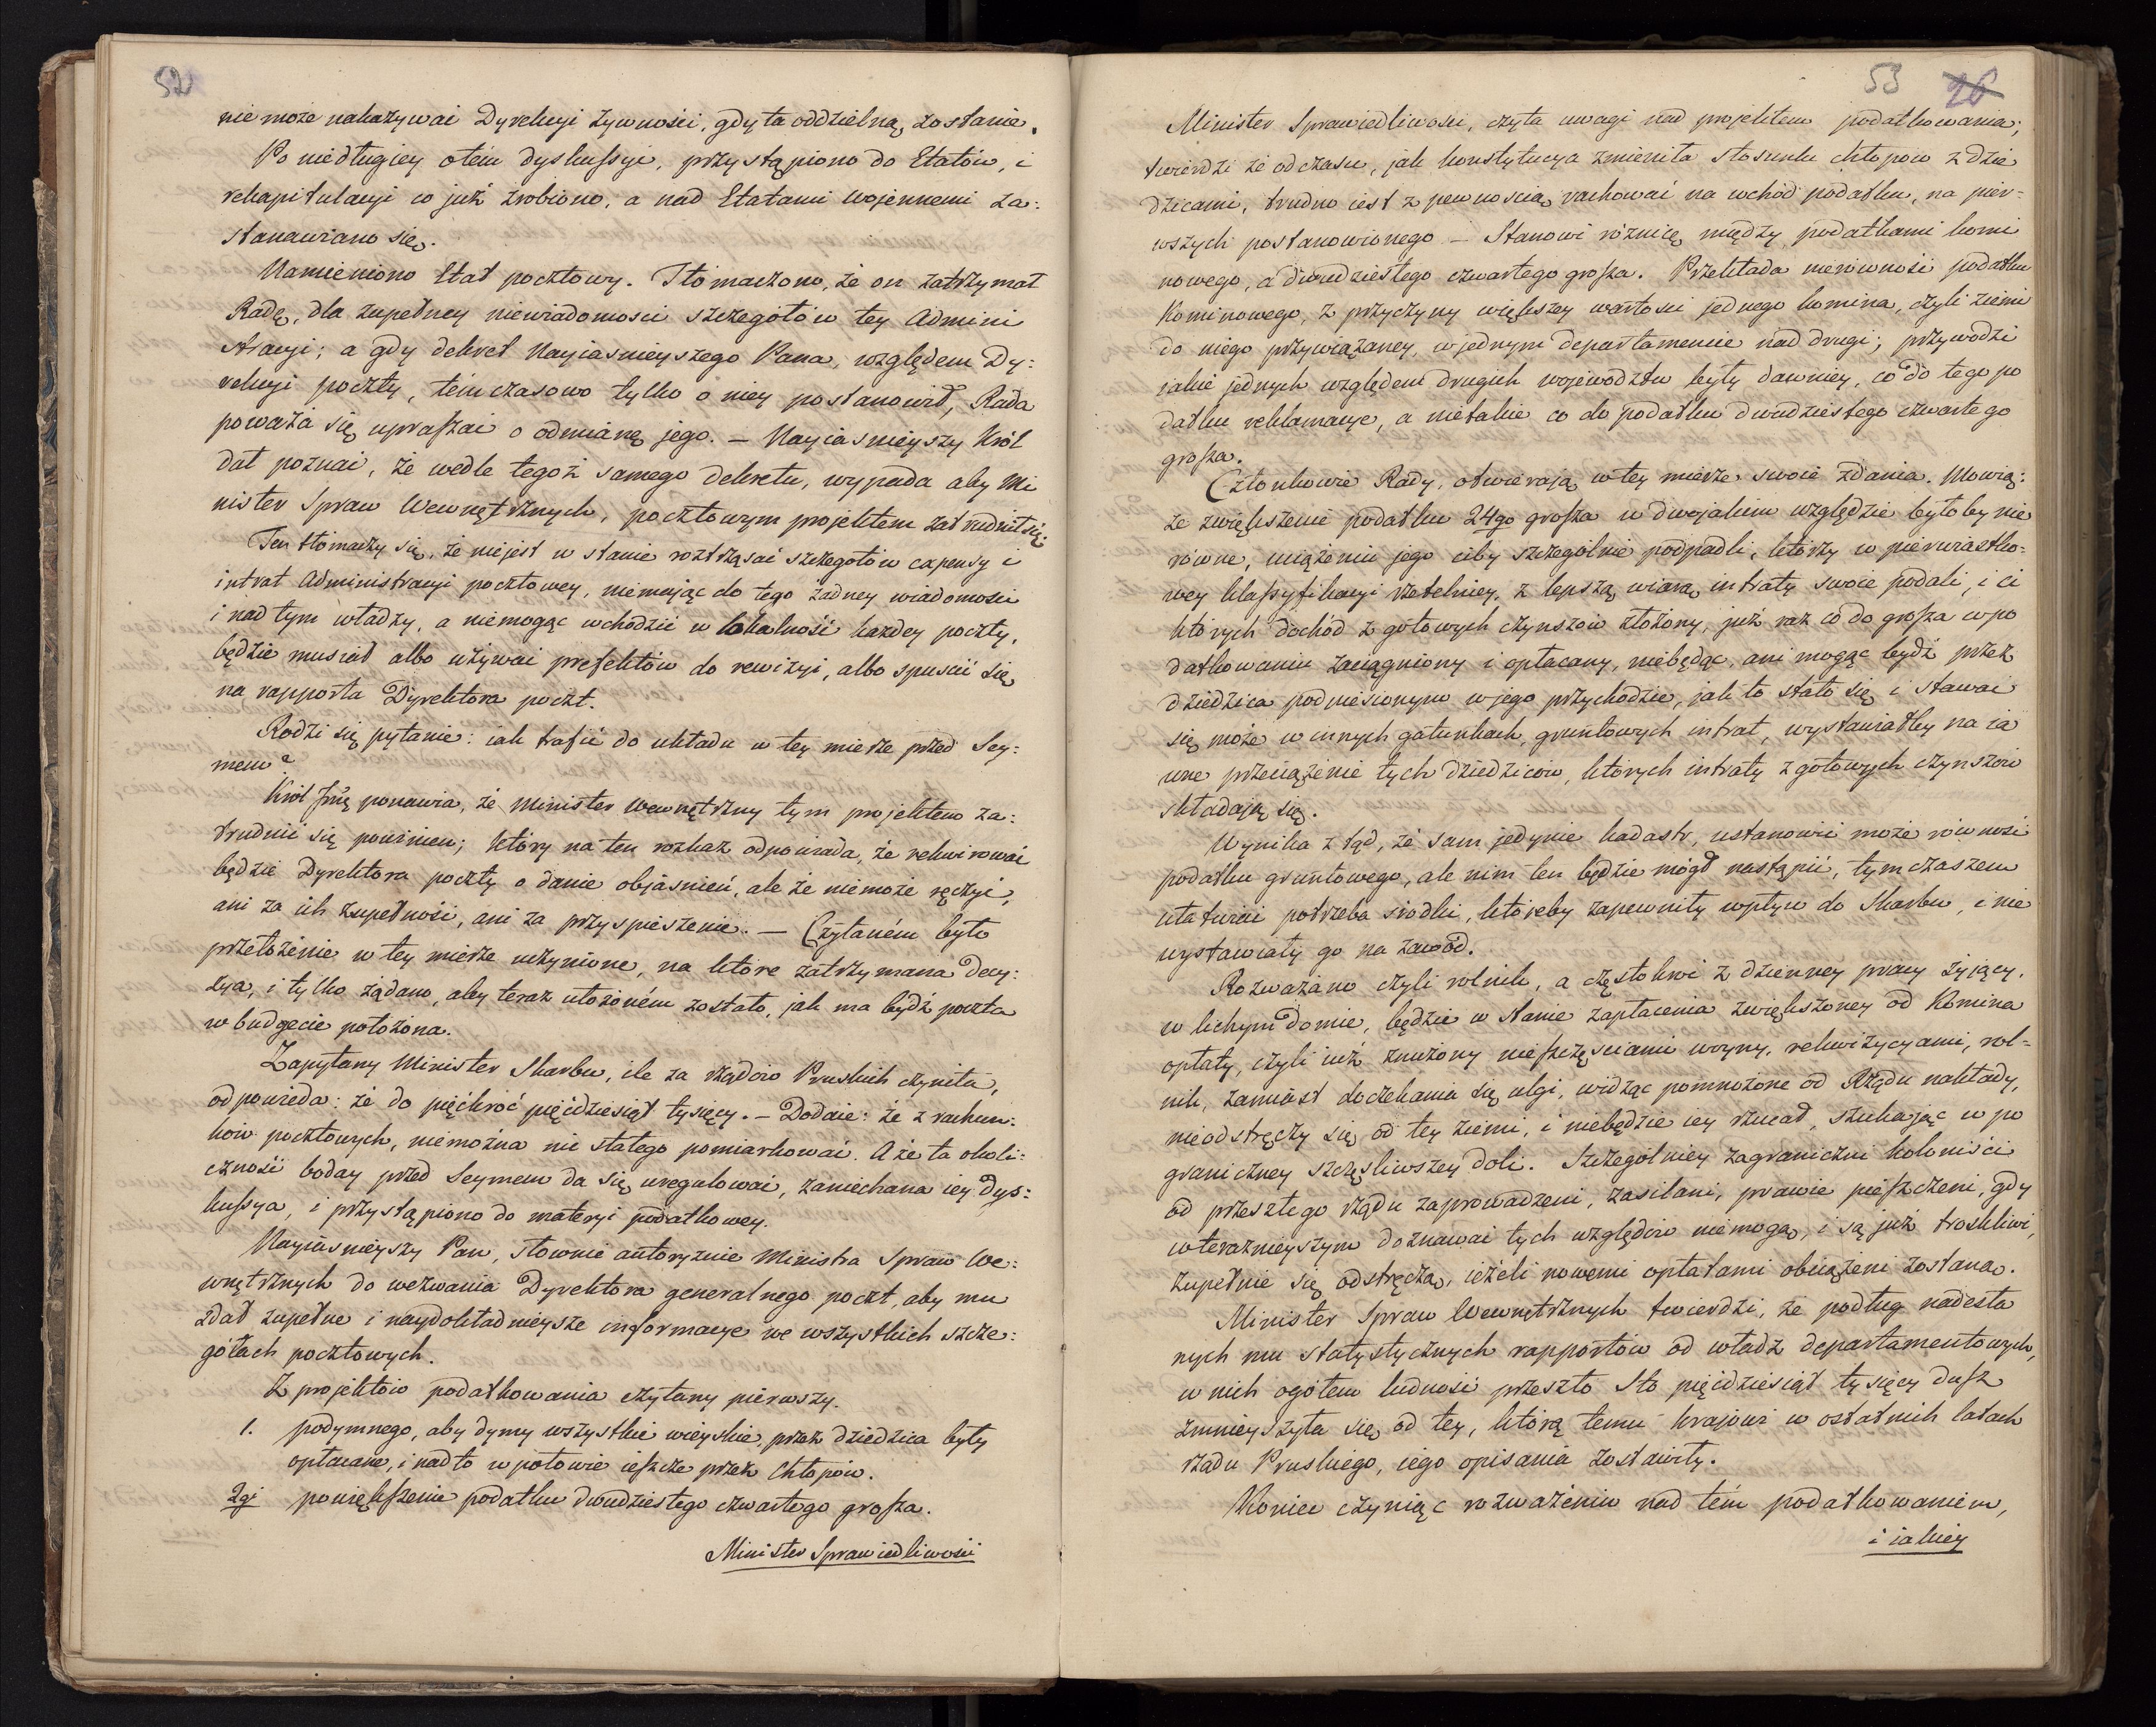 52
nie może nakazywać Dyrekcyi żywności, gdy ta oddzielną zostanie.
Po niedługiey o tém dyskussyi, przystąpiono do Etatów, i
rekapitulacyi co już zrobiono, a nad Etatami wojennemi za:
stanawiano się.
Namieniono Etat pocztowy. Tłómaczono, że on zatrzymał
Radę, dla zupełney niewiadomości szczegółów tey Admini
stracyi; a gdy dekret Nayiaśnieyszego Pana, względem Dy:
rekcyi poczty, témczasowo tylko o niey postanowił, Rada
poważa się upraszać o odmianę jego. — Nayiaśnieyszy Król
dał poznać, że wedle tegoż samego dekretu, wypada aby Mi
nister Spraw Wewnętrznych, pocztowym projektem zatrudnił się.
Ten tłómaczy się, że niejest w stanie roztrząsać szczegółów expensy i
intrat Administracyi pocztowey, niemając do tego żadney wiadomości
i nad tym władzy, a niemogąc wchodzić w lokalność każdey poczty,
będzie musiał albo używać prefektów do rewizyi, albo spuścić się
na rapporta Dyrektora poczt.
Rodzi się pytanie: iak trafić do układu w tey mierze przed Sey:
mem?
Król Jmć ponawia, że Minister wewnętrzny tym projektem za:
trudnić się powinien; który na ten rozkaz odpowiada, że rekwirować
będzie Dyrektora poczty o danie objaśnień, ale że niemoże ręczyć,
ani za ich zupełność, ani za przyspieszenie. — Czytaném było
przełożenie w tey mierze uczynione, na które zatrzymana decy:
zya, i tylko żądano, aby teraz ułożoném zostało, jak ma bydź poczta
w budgecie położona.
Zapytany Minister Skarbu, ile za rządów Pruskich czyniła,
odpowieda: że do pięćkroć pięćdziesiąt tysięcy. — Dodaie: że z rachun:
ków pocztowych, niemożna nic stałego pomiarkować. A że ta okoli:
czność boday przed Seymem da się uregulować, zaniechana iey dys:
kussya, i przystąpiono do materyi podatkowey.
Nayiaśnieyszy Pan, słownie autoryzuie Ministra Spraw We:
wnętrznych do wezwania Dyrektora generalnego poczt, aby mu
zdał zupełne i naydokładnieysze informacye we wszystkich szcze:
gółach pocztowych.
Z projektów podatkowania czytany pierwszy.
1. podymnego, aby dymy wszystkie wieyskie, przez dziedzica były
opłacane, i nadto w połowie ieszcze przez chłopów.
2gi powiększenie podatku dwudziestego czwartego grosza.
Minister Sprawiedliwości
53 26
Minister Sprawiedliwości, czyta uwagi nad projektem podatkowania;
twierdzi że od czasu, jak konstytucya zmieniła stosunki chłopów z dzie
dzicami, trudno iest z pewnością rachować na wchód podatku, na pier-
wszych postanowionego — Stanowi różnicę między podatkami komi
nowego, a dwudziestego czwartego grosza. Przekłada nierówność podatku
Kominowego, z przyczyny większey wartości jednego komina, czyli ziemi
do niego przywiązaney, w jednym departamencie nad drugi; przywodzi
jakie jednych względem drugich województw były dawniey, co do tego po
datku reklamacye, a nietakie co do podatku dwudziestego czwartego
grosza.
Członkowie Rady, otwierają w tey mierze swoie zdania. Mówią:
że zwiększenie podatku 24go grosza w dwojakim względzie byłoby nie
równe, uciążeniu jego ciby szczególnie podpadli, którzy w pierwiastko-
wey klassyfikacyi rzetelniey, z lepszą wiarą, intraty swoie podali, i ci
których dochód z gotowych czynszów złożony, już raz co do grosza w po
datkowaniu zaciągniony i opłacany, niebędąc, ani mogąc bydź przez
dziedzica podniesionym w jego przychodzie, jak to stało się i stawać
się może w innych gatunkach, gruntowych intrat, wystawiałby na ia
wne przeciążenie tych dziedziców, których intraty z gotowych czynszów
składają się.
Wynika z tąd, że sam jedynie kadastr, ustanowić może równość
podatku gruntowego, ale nim ten będzie mógł nastąpić, tymczasem
ułatwić potrzeba środki, któreby zapewniły wpływ do Skarbu, i nie
wystawiały go na zawód.
Rozważano czyli rolnik, a częstokroć z dzienney pracy żyjący,
w lichym domie, będzie w stanie zapłacenia zwiększoney od Komina
opłaty, czyli iuż znużony nieszczęściami woyny, rekwizycyami, rol-
nik, zamiast doczekania się ulgi, widząc pomnożone od Rządu nakłady,
nieodstręczy się od tey ziemi, i niebędzie iey rzucał, szukając w po
graniczney szczęśliwszey doli. Szczególniey zagraniczni koloniści
od przeszłego rządu zaprowadzeni, zasilani, prawie pieszczeni, gdy
w teraznieyszym doznawać tych względów niemogą, i są już troskliwi,
zupełnie się odstręczą, ieżeli nowemi opłatami obciążeni zostaną.
Minister Spraw Wewnętrznych twierdzi, że podług nadesła
nych mu statystycznych rapportów od władz departamentowych,
w nich ogółem ludności przeszło sto pięćdziesiąt tysięcy dusz
zmnieyszyła się, od tey, którą temu krajowi w ostatnich latach
rządu Pruskiego, iego opisania zostawiły.
Koniec czyniąc rozważeniu nad tém podatkowaniem,
i iakiey